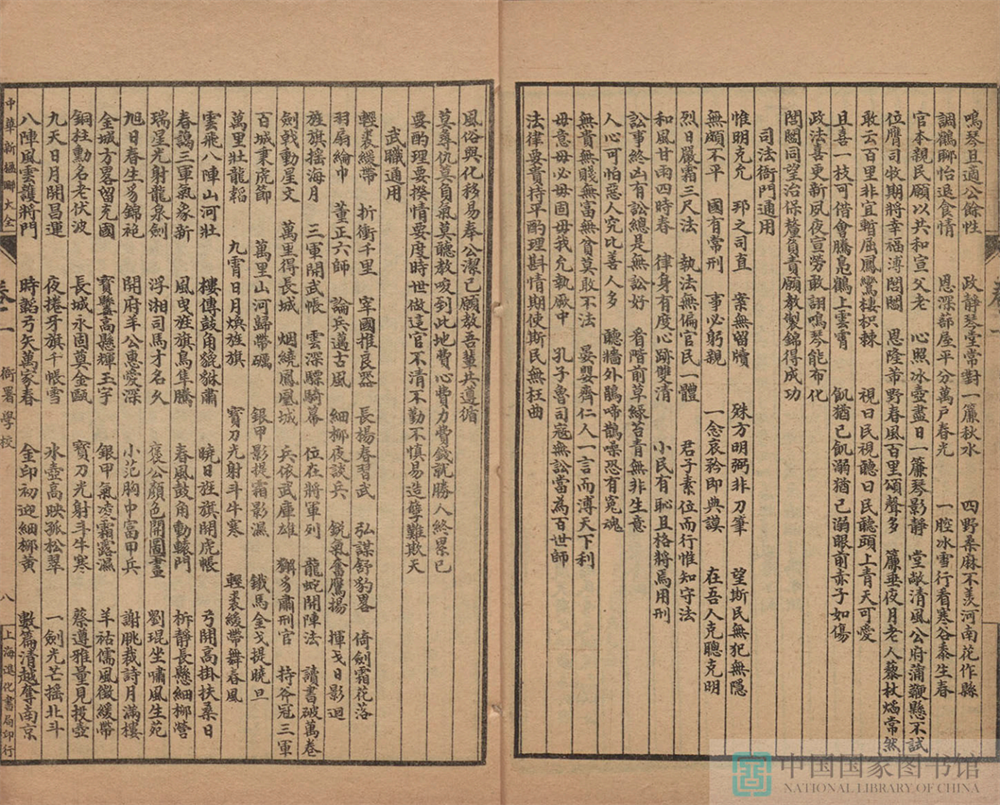 鳴琴且適公餘性　政靜琴堂常對一簾秋水　四野桑麻不羨河南花作縣
調鶴聊怡退食情　恩深蔀屋平分萬戶春光　一腔冰雪行看寒谷黍生春
官本親民願以共和宣父老　心照冰壺盡日一簾琴影靜　堂敞清風公府蒲鞭懸不試
位膺司牧期將幸福溥閭閻　恩隆茀野春風百里頌聲多　簾垂夜月老人藜杖焰常然
敢云百里非宜暫屈鳳鸞棲枳棘　視曰民視聽曰民聽頭上青天可愛
且喜一技可借會騰鳧鶴上雲霄　飢猶己飢溺猶己溺眼前赤子如傷
政法喜更新夙夜宣勞敢詡鳴琴能布化
閭閻同望治保釐負責願教製錦得成功
司法衙門通用
惟明克允　邦之司直　案無留牘　殊方明弼非刀筆　望斯民無犯無隱
無頗不平　國有常刑　事必躬親　一念哀矜即典謨　在吾人克聰克明
烈日嚴霜三尺法　執法無偏官民一體　君子素位而行惟知守法
和風甘雨四時春　律身有度心跡雙清　小民有恥且格將焉用刑
訟事終凶有訟總是無訟好　看階前草綠苔青無非生意
人心可怕惡人究比善人多　聽牆外鵑啼鵲噪恐有冤魂
無貴無賤無富無貧莫敢不法　晏嬰齊仁人一言而溥天下利
毋意毋必毋固毋我允執厥中　孔子魯司寇無訟當為百世師
法律要實持平酌理斟情期使斯民無枉曲
風俗與化移易奉公潔己願教吾輩共遵循
莫辱仇莫負氣莫聽教唆到此地費心費力費錢就勝人終累己
要酌理要揆情要度時世做這官不清不勤不慎易造孽難欺天
武職通用
輕裘緩帶　折衝千里　宰國推良器　長楊春習武　弘謀舒豹畧　倚劍霜花落
羽扇綸巾　董正六師　論兵邁古風　細柳夜談兵　銳氣奮鷹揚　揮戈日影迴
旌旗搖海月　三軍開武帳　雲深驃騎幕　位在將軍列　龍蛇開陣法　讀書破萬卷
劍戟動星文　萬里得長城　烟繞鳳凰城　兵依武庫雄　獬豸肅刑官　持斧冠三軍
百城秉虎節　萬里山河歸帶礪　銀甲影提霜影濕　鐵馬金戈提曉旦
萬里壯龍韜　九霄日月煥旌旗　寶刀光射斗牛寒　輕裘緩帶舞春風
雲飛八陣山河壯　樓傳鼓角貔貅肅　曉日旌旗開虎帳　弓開高掛扶桑日
春譪三軍氣象新　風曳旌旗鳥隼騰　春風鼓角動轅門　柝靜長懸細柳營
瑞星光射龍泉劍　浮湘司馬才名久　褒公顏色開圖畫　劉琨坐嘯風生苑
旭日春生易錦袍　開府羊公惠愛深　小范胸中富甲兵　謝朓裁詩月滿樓
金城方畧留充國　寶鑒高懸輝玉字　銀甲氣凌霜露濕　羊祜儒風微緩帶
銅柱勳名老伏波　長城永固莫金甌　寶刀光射斗牛寒　蔡遵雅量見投壺
九天日月開昌運　夜捲牙旗千帳雪　冰壺高映孤松翠　一劍光芒搖北斗
八陣風雲護將門　時韜弓矢萬家春　金印初迎細柳黃　數篇清越奪南京
中華新楹聯大全
卷二　衙署　學校
八
上海進化書局印行
中国国家图书馆
NATIONAL LIBRARY OF CHINA